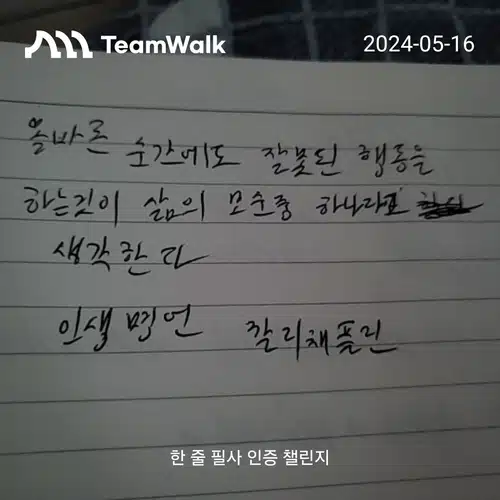 TeamWalk
2024-05-16
올바른 순간에도 잘못된 행동을
하는것이 삶의 모순중 하나라고
생각한다
인생명언 찰리채플린
한 줄 필사 인증 챌린지